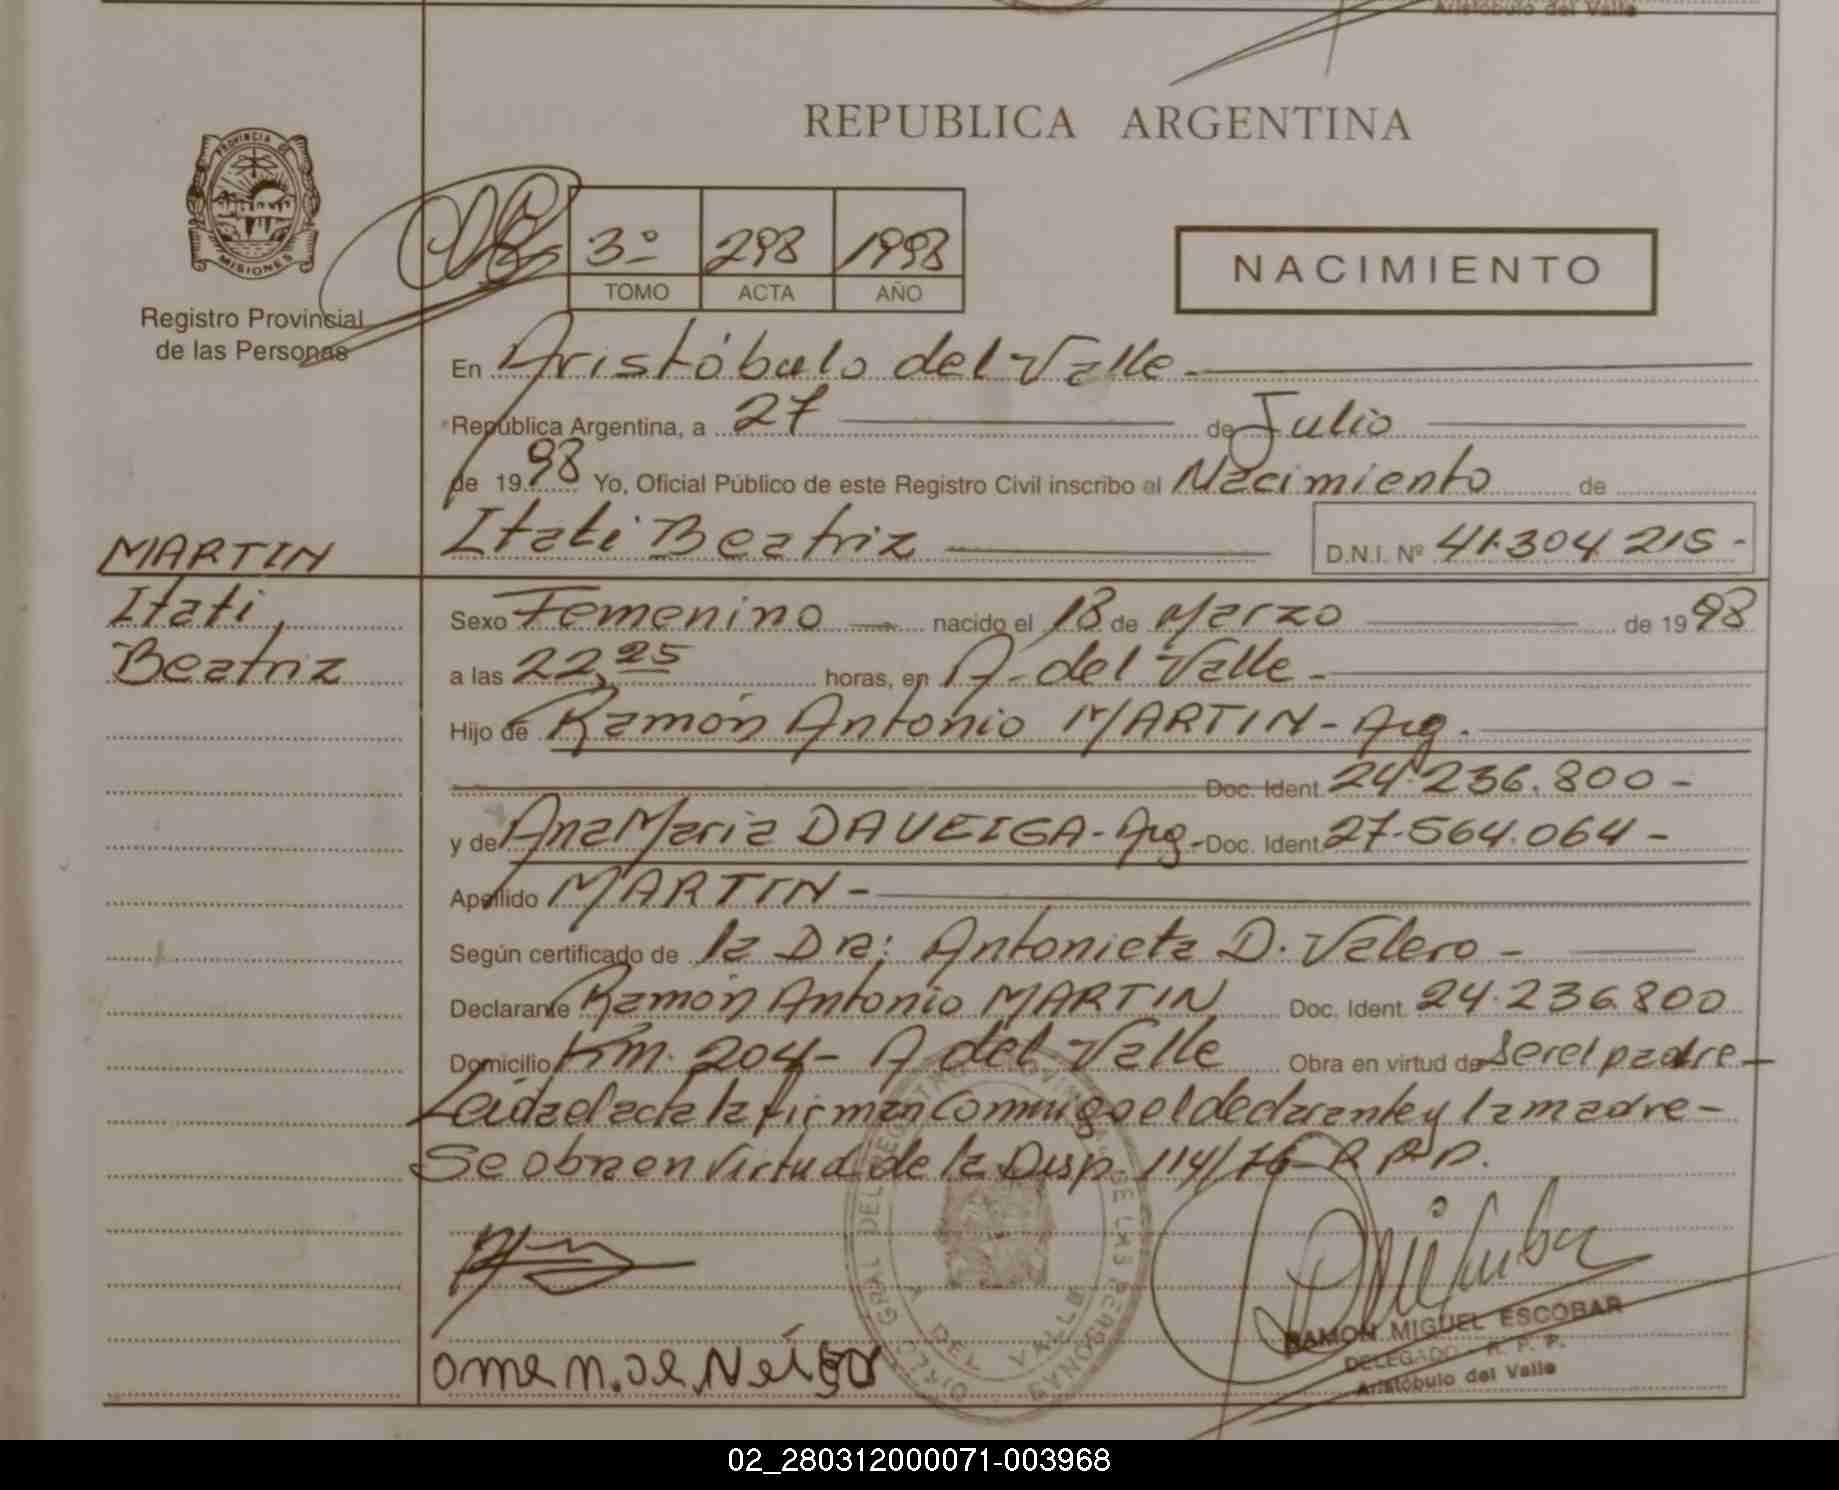 Aristóbulo del Valle
REPUBLICA ARGENTINA
PROVINCIA DE
MISIONES
Registro Provincial
de las Personas
3º 298 1998
TOMO ACTA AÑO
NACIMIENTO
En Aristóbulo del Valle
República Argentina, a 27 de Julio
de 1998 Yo, Oficial Público de este Registro Civil inscribo el Nacimiento de
Itati Beatriz D.N.I. Nº 41.304.215-
MARTIN
Itati
Beatriz
Sexo Femenino nacido el 18 de Marzo de 1998
a las 22,25 horas, en A. del Valle-
Hijo de Ramón Antonio MARTIN- Arg.
Doc. Ident. 24.236.800-
y de Ana Maria DAVEIGA- Arg.- Doc. Ident. 27.564.064-
Apellido MARTIN-
Según certificado de la DRa: Antonieta D. Valero-
Declarante Ramón Antonio MARTIN Doc. Ident. 24.236.800
Domicilio Km. 204- A del Valle Obra en virtud de Ser el padre-
Leida el acta la firman conmigo el declarante y la madre-
Se obra en virtud de la Disp. 114/76- R.P.P.
RAMON MIGUEL ESCOBAR
DELEGADO - R. P. P.
Aristóbulo del Valle
02_280312000071-003968